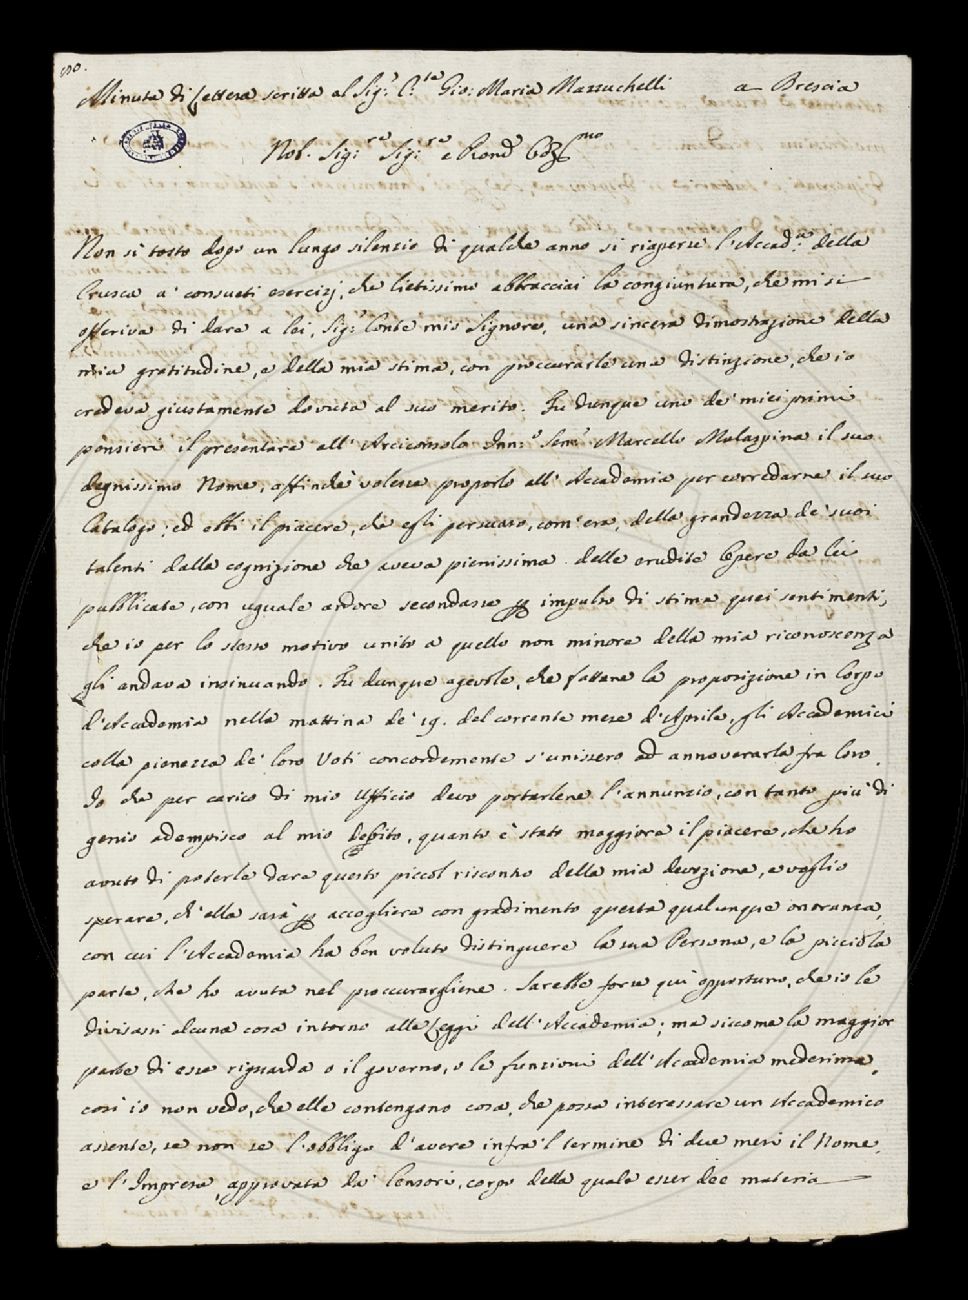 Minuta di Lettera scritta al Sig.r C.te Gio: Maria Mazzuchelli a Brescia
Nob. Sig.re Sig.re e Pronē Col.mo
Non si tosto dopo un lungo silenzio di qualche anno si riaperse l'Accad.a della
Crusca a' consueti esercizj, che lietissimo abbracciai la congiuntura, che mi si
offeriva di dare a lei, Sig.r Conte mio Signore, una sincera dimostrazione della
mia gratitudine, e della mia stima, con proccurarle una distinzione, che io
credeva giustamente dovuta al suo merito. Fu dunque uno de' miei primi
pensieri il presentare all'Arciconsolo Inn:o Sen.r Marcello Malaspina il suo
degnissimo Nome, affinchè volesse proporlo all'Accademia per corredarne il suo
Catalogo; ed ebbi il piacere, che egli persuaso, com'era, della grandezza de' suoi
talenti dalla cognizione che aveva pienissima delle erudite Opere da lei
pubblicate, con uguale ardore secondasse impulso di stima quei sentimenti,
che io per lo stesso motivo unito a quello non minore della mia riconoscenza
gli andava insinuando. Fu dunque agevole, che fattane la proposizione in Corpo
d'Accademia nella mattina de' 19. del corrente mese d'Aprile, gli Accademici
colla pienezza de' loro Voti concordemente s'unissero ad annoverarla fra loro.
Io che per carico di mio Uffizio devo portarlene l'annunzio, con tanto più di
genio adempisco al mio debito, quanto è stato maggiore il piacere, che ho
avuto di poterle dare questo piccol riscontro della mia devozione, e voglio
sperare, ch'ella sarà accogliere con gradimento questa qualunque onoranza,
con cui l'Accademia ha ben voluto distinguere la sua Persona, e la picciola
parte, che ho avuta nel proccurargliene. Sarebbe forse quì opportuno, che io le
divisassi alcuna cosa intorno alle Leggi dell'Accademia; ma siccome la maggior
parte di esse riguarda o il governo, o le funzioni dell'Accademia medesima,
così io non vedo, che elle contengano cosa, che possa interessare un Accademico
assente, se non se l'obbligo d'avere infra 'l termine di due mesi il Nome,
e l'Impresa approvata da' Censori, corpo della quale esser dee materia